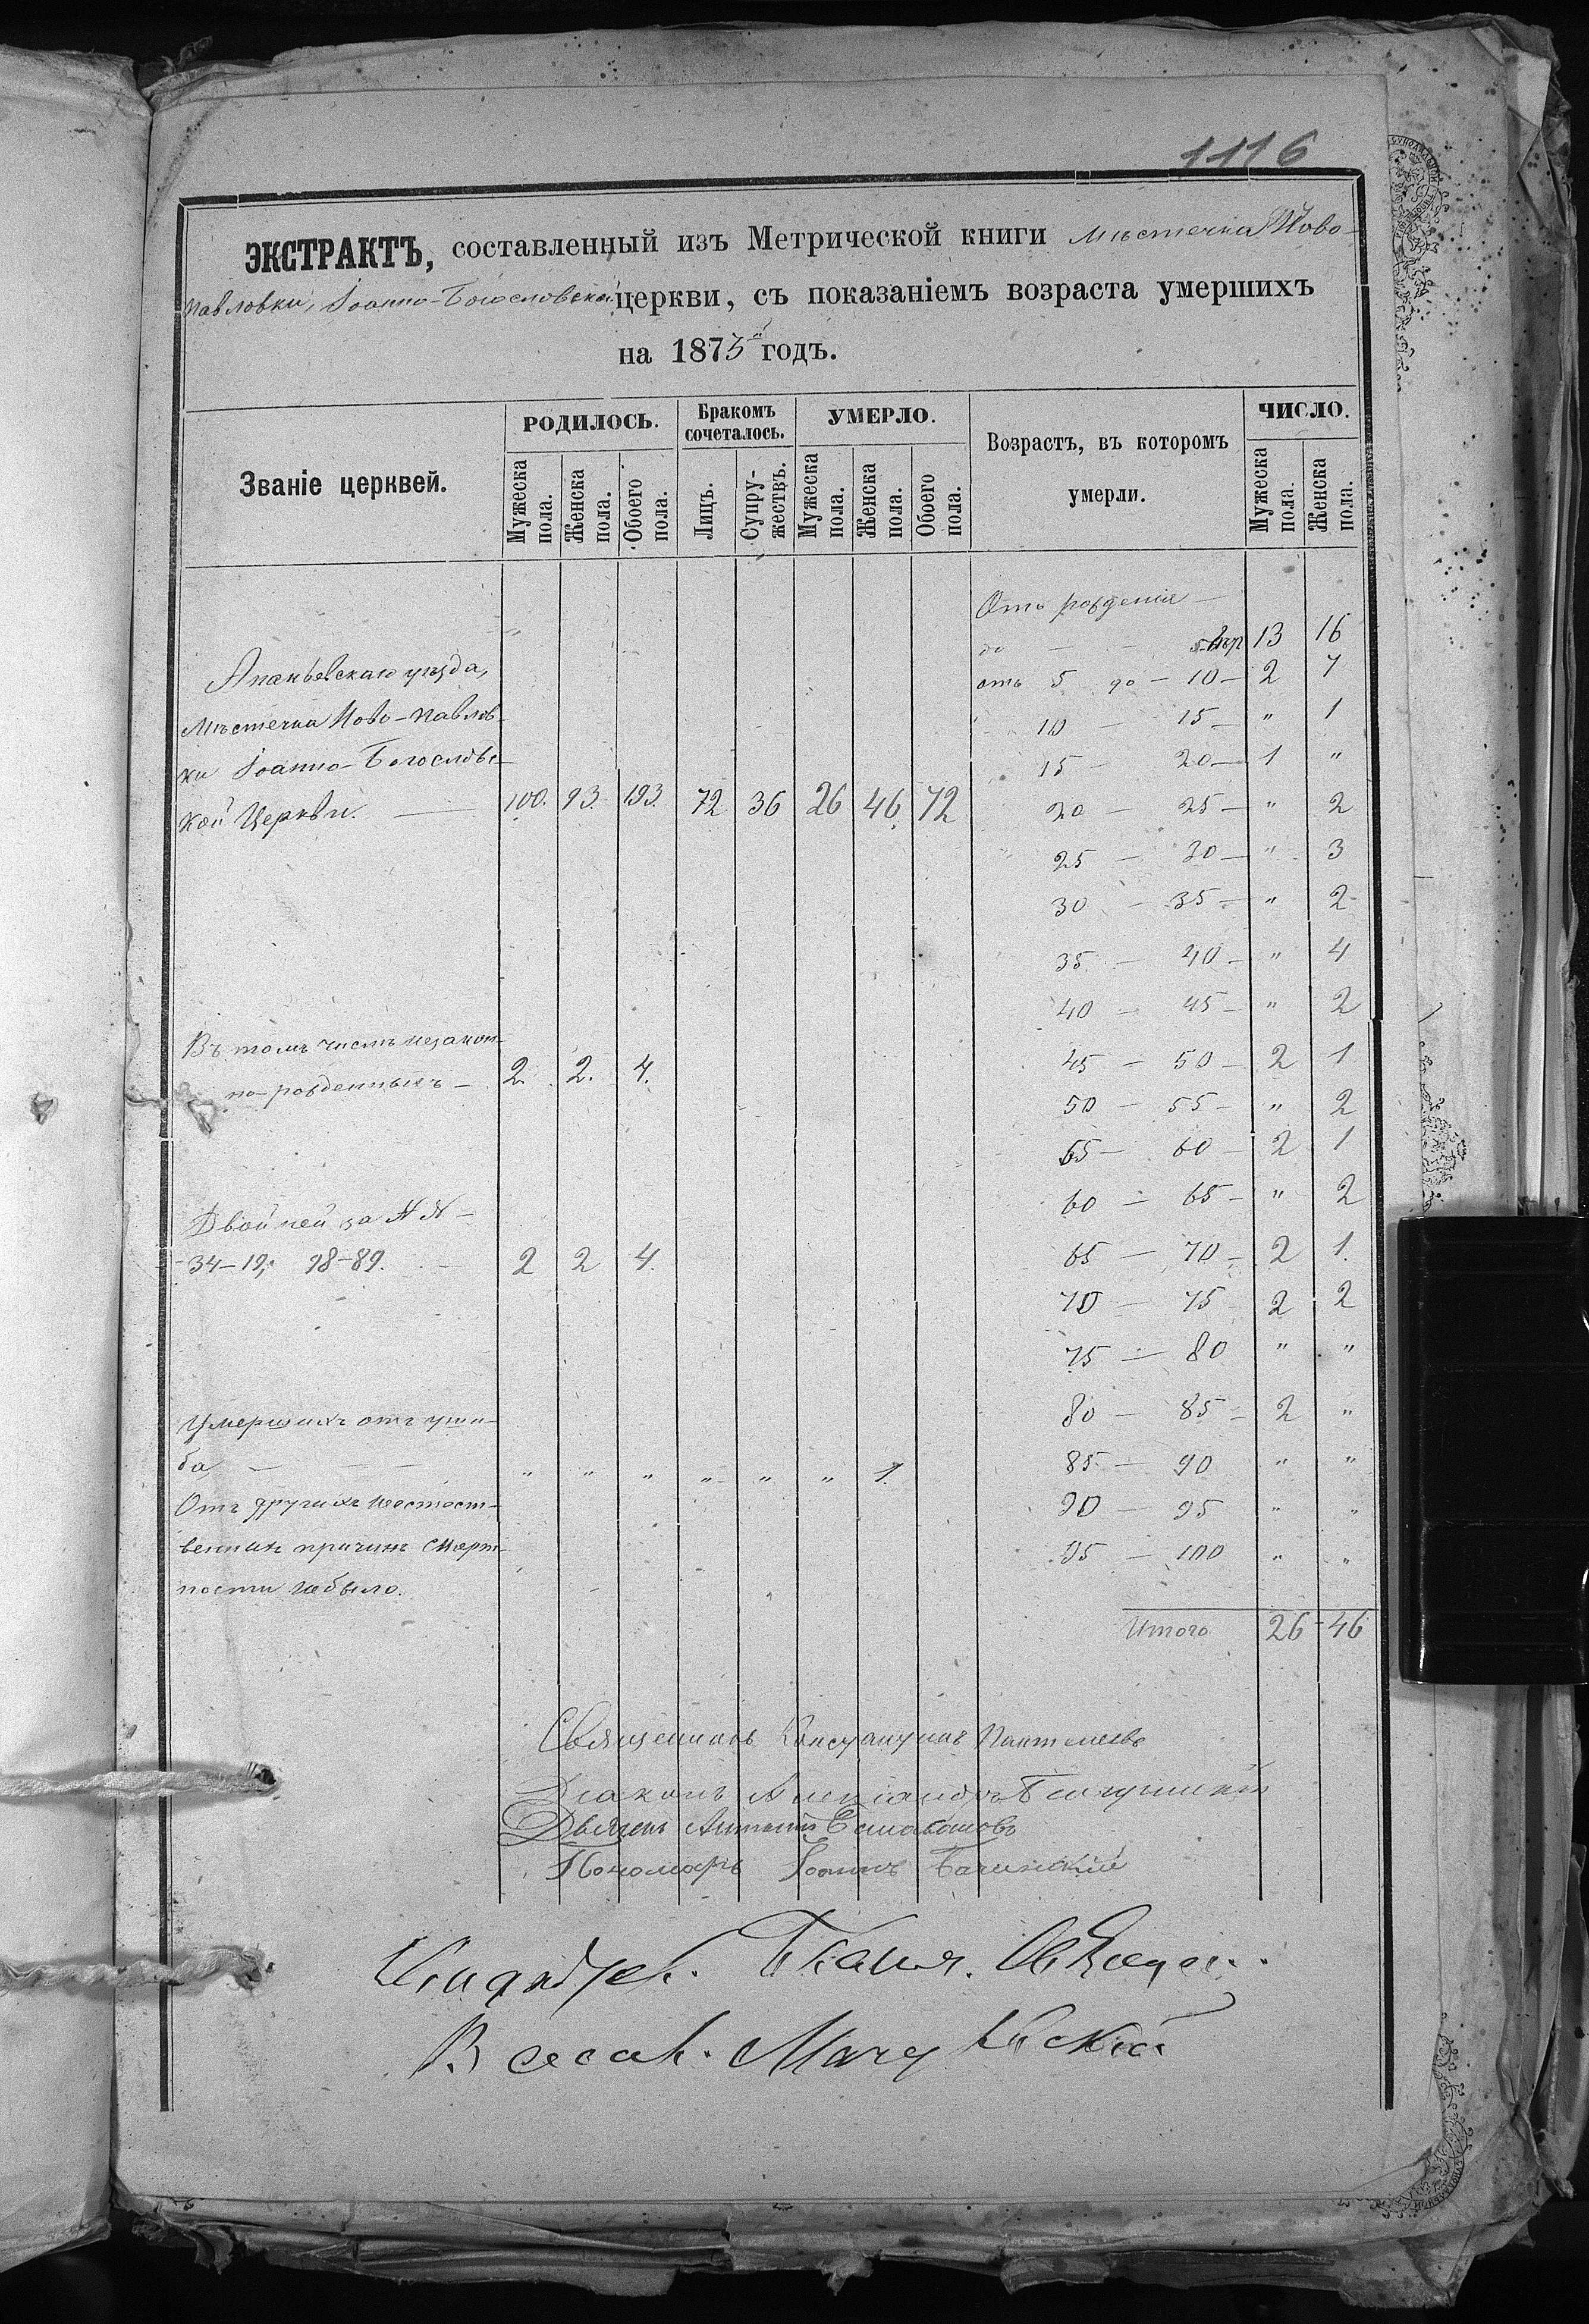 1116
ЭКСТРАКТЪ, составленный изъ Метрической книги мѣстечка Ново-
павловки, Іоанно-Богословской церкви, съ показаніемъ возраста умершихъ
на 1875й годъ.
Званіе церквей.
РОДИЛОСЬ.
Мужеска пола.
Женска пола.
Обоего пола.
Бракомъ сочеталось.
Лицъ.
Супру-жествъ.
УМЕРЛО.
Мужеска пола.
Женска пола.
Обоего пола.
Возрастъ, въ которомъ
умерли.
ЧИСЛО.
Мужеска пола.
Женска пола.
Ананьевскаго уѣзда,
Мѣстечка Ново-Павлов-
ки Іоанно-Богословс-
кой Церкви. 100. 93. 193. 72 36 26 46 72
Въ томъ числѣ незакон-
но-рожденныхъ 2. 2. 4.
Двойней за NN
34-19, 98-89. 2 2 4.
Умершихъ отъ уши-
ба, " " " " " " 1.
Отъ другихъ неестест-
венныхъ причинъ смерт-
ности небыло.
Отъ рожденія
до 5 13 16
отъ 5 до 10 2 7
10 15 " 1
15 20 1 "
20 25 " 2
25 30 " 3
30 35 " 2
35 40 " 4
40 45 " 2
45 50 2 1
50 55 " 2
55 60 2 1
60 65 " 2
65 70 2 1.
70 75 2 2
75 80 " "
80 85 2 "
85 90 " "
90 95 " "
95 100 " "
Итого 26 46
Священникъ Константинъ Пантелеевъ
Діаконъ Александръ
Дьячекъ Антоній
Пономарь Іоаннъ Бачинскій